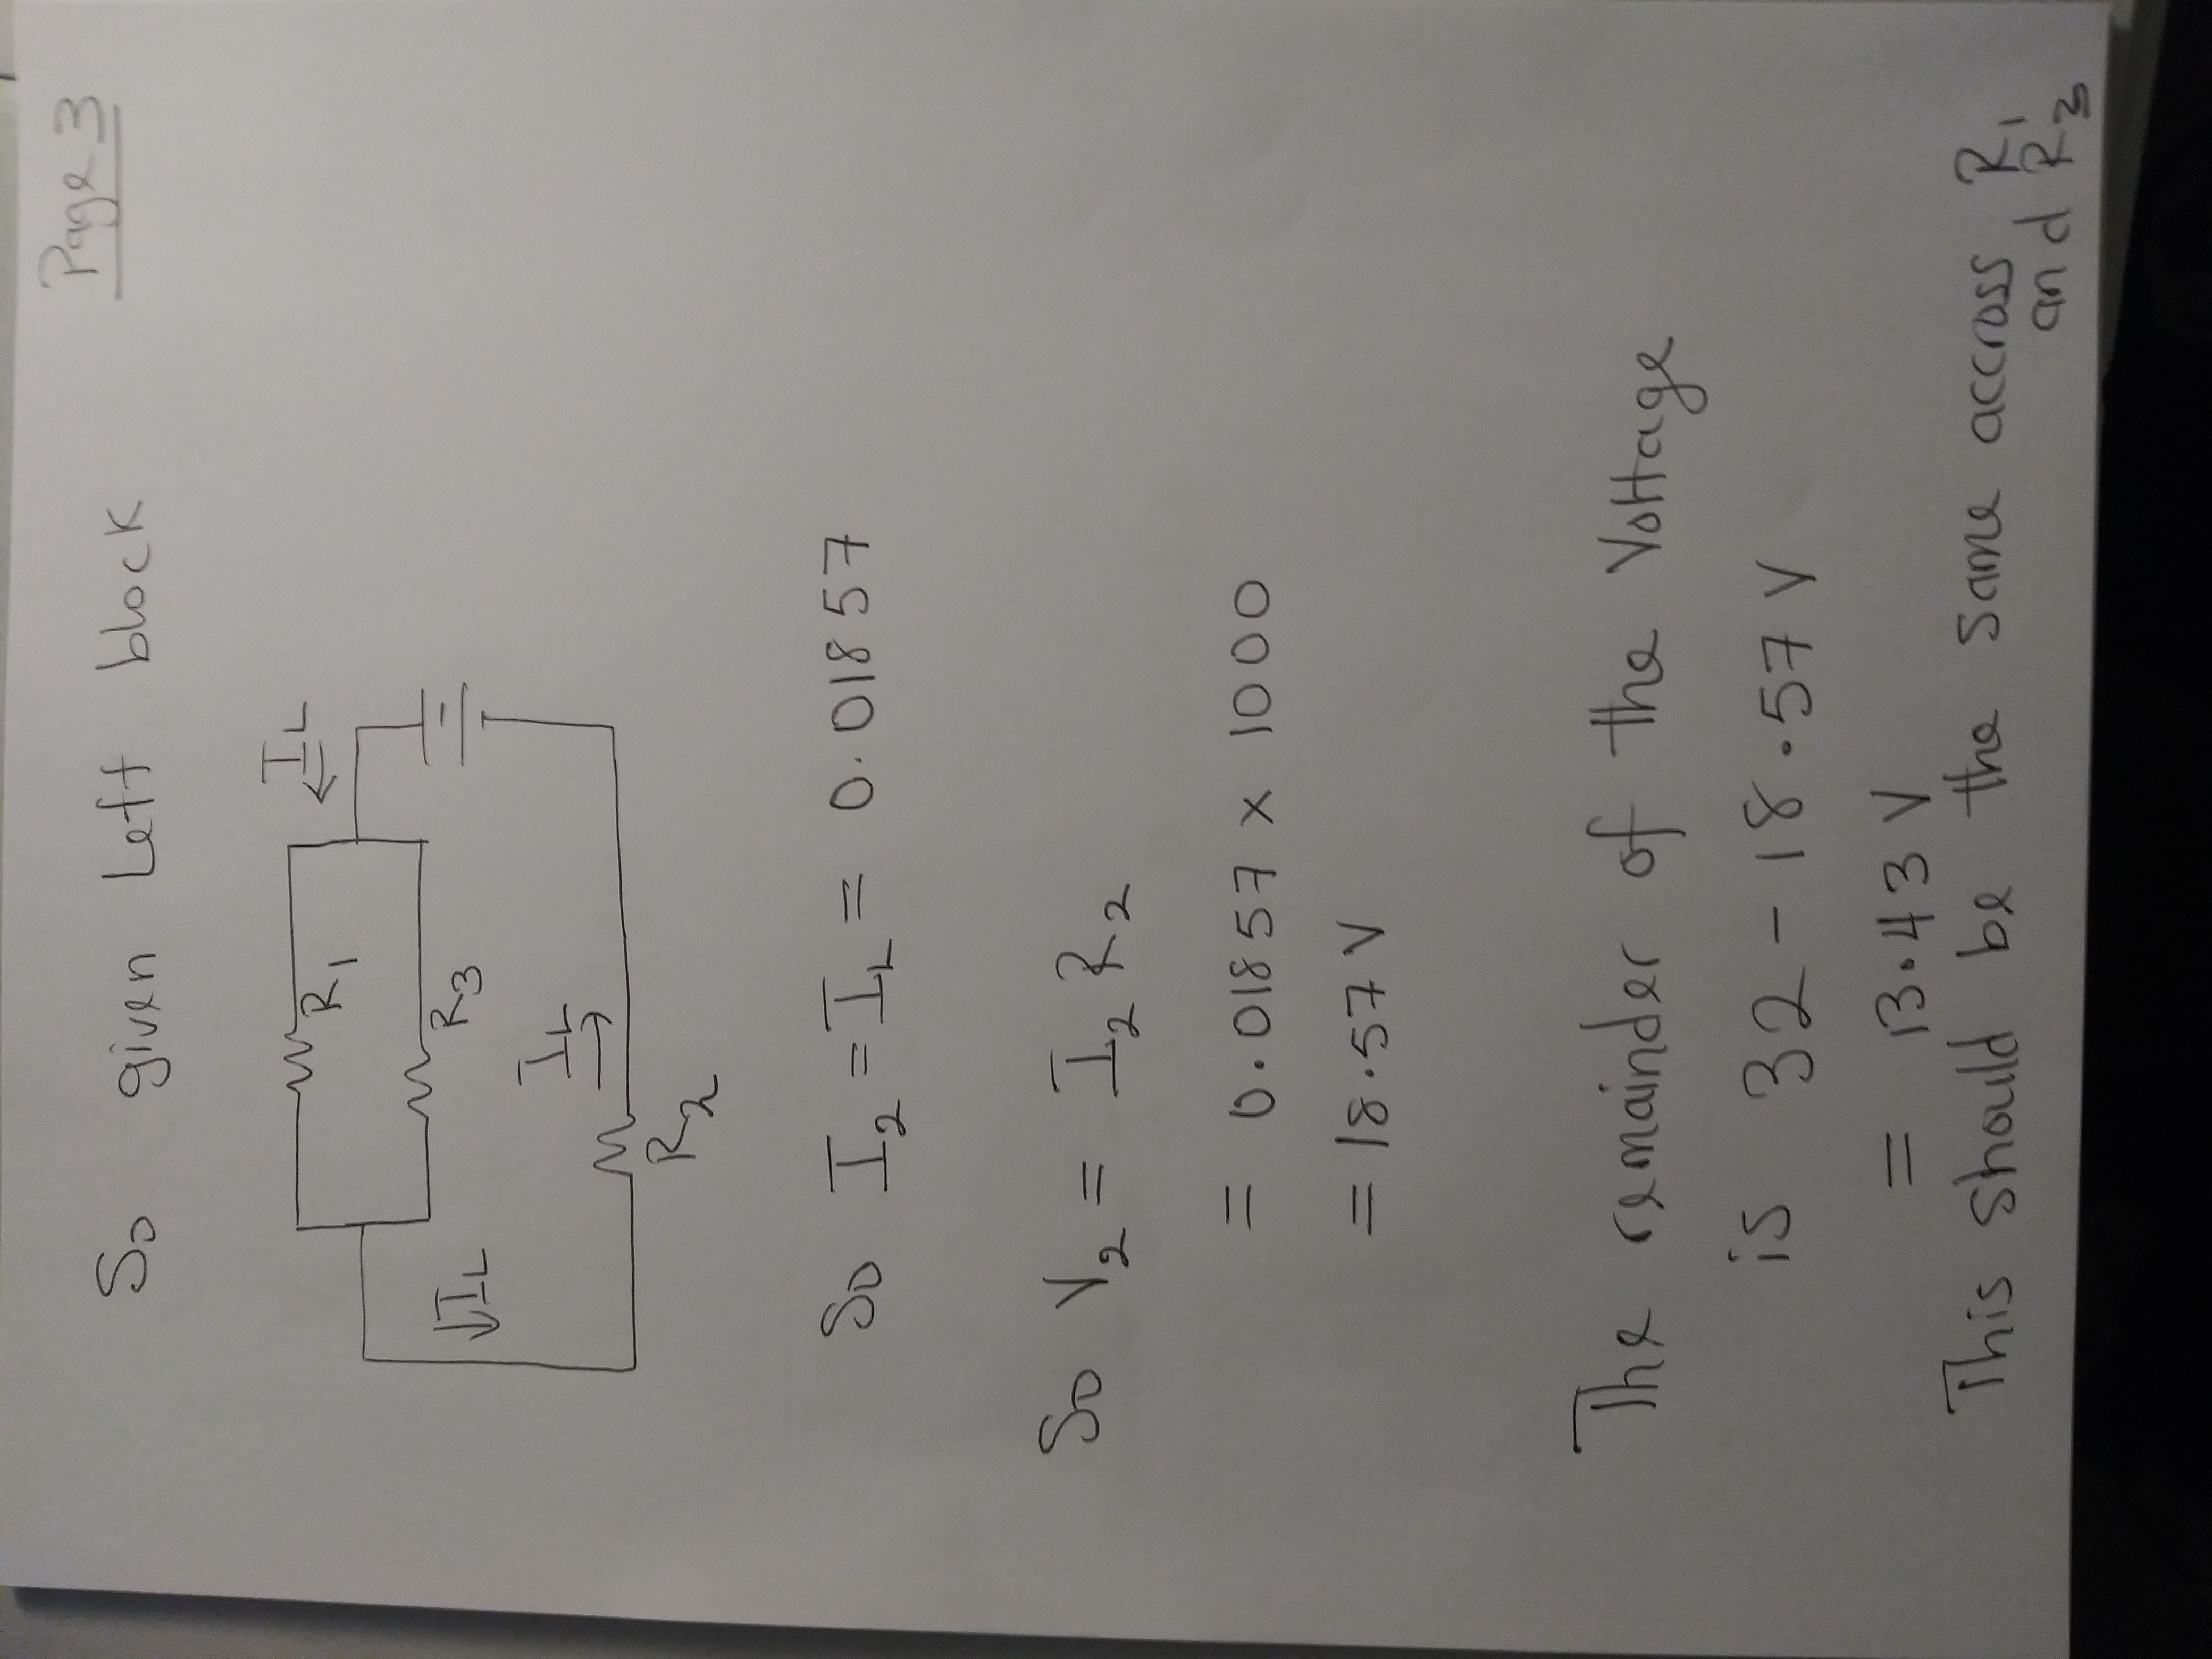 Page 3
So given Left block
I_L
R_1
R_3
I_L
I_L
R_2
So I_2 = I_L = 0.01857
So V_2 = I_2 R_2
= 0.01857 x 1000
= 18.57 V
The remainder of the Voltage
is 32 - 18.57 V
= 13.43 V
This should be the same accross R_1
and R_3